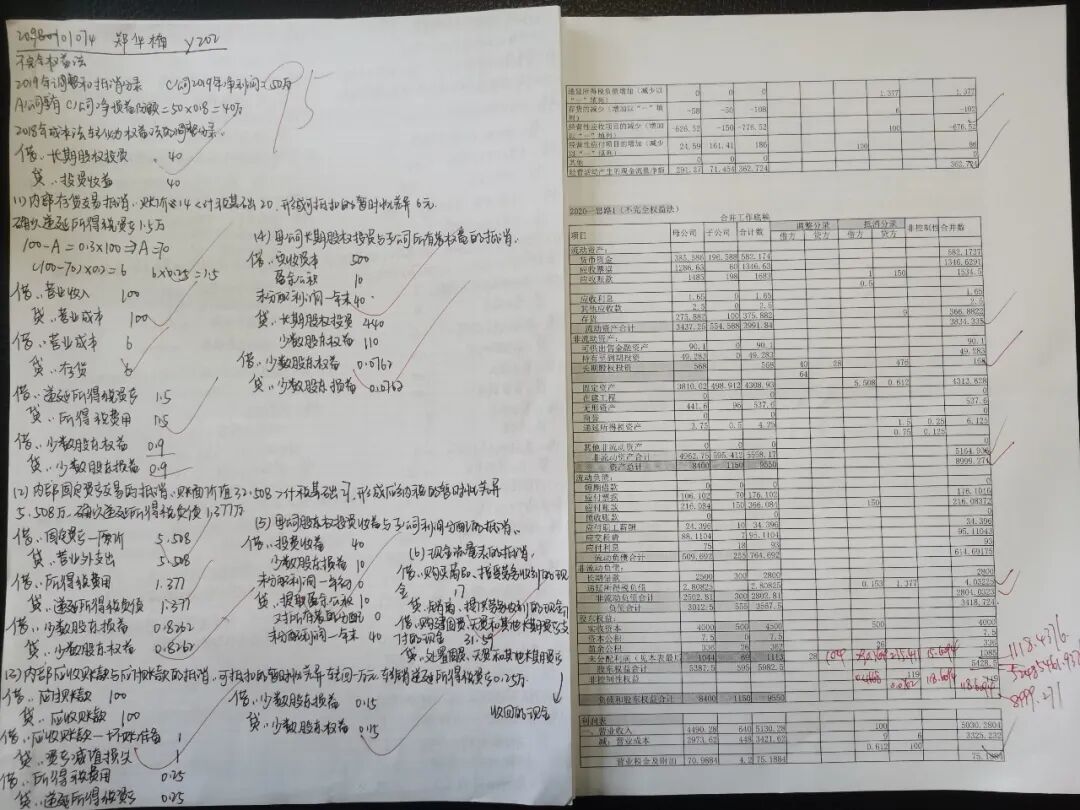 郑华楠 y202
95
不完全权益法
2019年调整和抵消分录 C公司2019年净利润=50万
A公司享有C公司净损益份额=50×0.8=40万
2018年成本法转化为权益法的调整分录.
借:长期股权投资 40
贷:投资收益 40
(1)内部存货交易抵消.账价值14<计税基础20.形成可抵扣的暂时性差异6元.
确认递延所得税资产1.5万
100-A=0.3×100→A=70
(100-70)×0.2=6 6×0.25=1.5
借:营业收入 100
贷:营业成本 100
借:营业成本 6
贷:存货 6
借:递延所得税资产 1.5
贷:所得税费用 1.5
借:少数股东权益 0.9
贷:少数股东损益 0.9
(2)内部固定资产交易的抵消.账面价值
5.508万.确认递延所得税负债1.377万
借:固定资产—原价 5.508
贷:营业外支出 5.508
借:所得税费用 1.377
贷:递延所得税负债 1.377
借:少数股东损益 0.8262
贷:少数股东权益 0.8262
(3)内部应收账款与应付账款的抵消.可抵扣的暂时性差异转回一万元.转销递延所得税资产0.25万.
借:应付账款 100
贷:应收账款 100
借:应收账款—坏账准备 1
贷:资产减值损失 1
借:所得税费用 0.25
贷:递延所得税资产 0.25
借:少数股东损益 0.15
贷:少数股东权益 0.15
(4)母公司长期股权投资与子公司所有者权益的抵消.
借:实收资本 500
盈余公积 10
未分配利润—年末 40
贷:长期股权投资 440
少数股东权益 110
借:少数股东权益 0.0762
贷:少数股东损益 0.0762
(5)母公司股权投资收益与子公司利润分配的抵消.
借:投资收益 40
少数股东损益 10
未分配利润—年初 0
贷:提取盈余公积 10
对所有者的分配 0
未分配利润—年末 40
(6)现金流量表的抵消.
借:购买商品、接受劳务支付的现
金 17
贷:销售、提供劳务收到的现金
借:购建固资、无资和其他长期资产支
付的现金 31.59
贷:处置固资、无资和其他长期资产
收回的现金
递延所得税负债增加(减少以“一”填列) 0 0 0 1.377 1.377
存货的减少(增加以“一”填列) -58 -50 -108 6 -102
经营性应收项目的减少(增加以“一”填列) -626.52 -150 -776.52 100 -676.52
经营性应付项目的增加(减少以“一”填列) 24.59 161.41 186 100 86
其他 0 0 0 0
经营活动产生的现金流量净额 291.27 71.454 362.724 362.724
2020—思路1(不完全权益法)
合并工作底稿
项目 母公司 子公司 合计数 调整分录 抵消分录 非控制性 合并数
借方 贷方 借方 贷方
流动资产:
货币资金 385.586 196.588 582.174 582.1727
应收票据 1286.63 60 1346.63 1346.6291
应收账款 1485 198 1683 1 150 1534.5
0.5
应收利息 1.65 0 1.65 1.65
其他应收款 2.5 0 2.5 2.5
存货 275.882 100 375.882 9 366.8822
流动资产合计 3437.25 554.588 3991.84 3834.335
非流动资产:
可供出售金融资产 90.1 0 90.1 90.1
持有至到期投资 49.283 0 49.283 49.283
长期股权投资 568 568 40 28 476 168
64
固定资产 3810.02 498.912 4308.93 5.508 0.612 4313.828
在建工程 0 0 0
无形资产 441.6 96 537.6 537.6
商誉 0
递延所得税资产 3.75 0.5 4.25 1.5 0.25 6.125
0.75 0.125
其他非流动资产 0 0
非流动资产合计 4962.75 595.412 5558.17 5164.936
资产总计 8400 1150 9550 8999.271
流动负债:
短期借款 0 0 0
应付票据 106.102 70 176.102 176.1016
应付账款 216.084 150 366.084 150 216.08372
预收账款 0 0 0
应付职工薪酬 24.396 10 34.396 34.396
应交税费 88.1104 7 95.1104 95.11043
应付利息 75 18 93 93
流动负债合计 509.692 255 764.692 614.69175
非流动负债:
长期借款 2500 300 2800 2800
递延所得税负债 2.80825 2.80825 0.153 1.377 4.03225
非流动负债合计 2502.81 300 2802.81 2804.0323
负债合计 3012.5 555 3567.5 3418.724
股东权益:
实收资本 4000 500 4500 500 4000
资本公积 7.5 0 7.5 7.5
盈余公积 336 26 362 336
未分配利润(见本表最 1044 69 1113 28 104 1085
股东权益合计 5387.5 595 5982.5 5428.5
非控制性权益 119
0.0762 118.6094
负债和股东权益合计 8400 1150 9550
1118.4376
8999.271
利润表
一、营业收入 4490.28 640 5130.28 100 5030.2804
减:营业成本 2973.62 448 3421.62 9 6 3325.232
0.612 100
营业税金及附加 70.9884 4.2 75.1884 75.1884